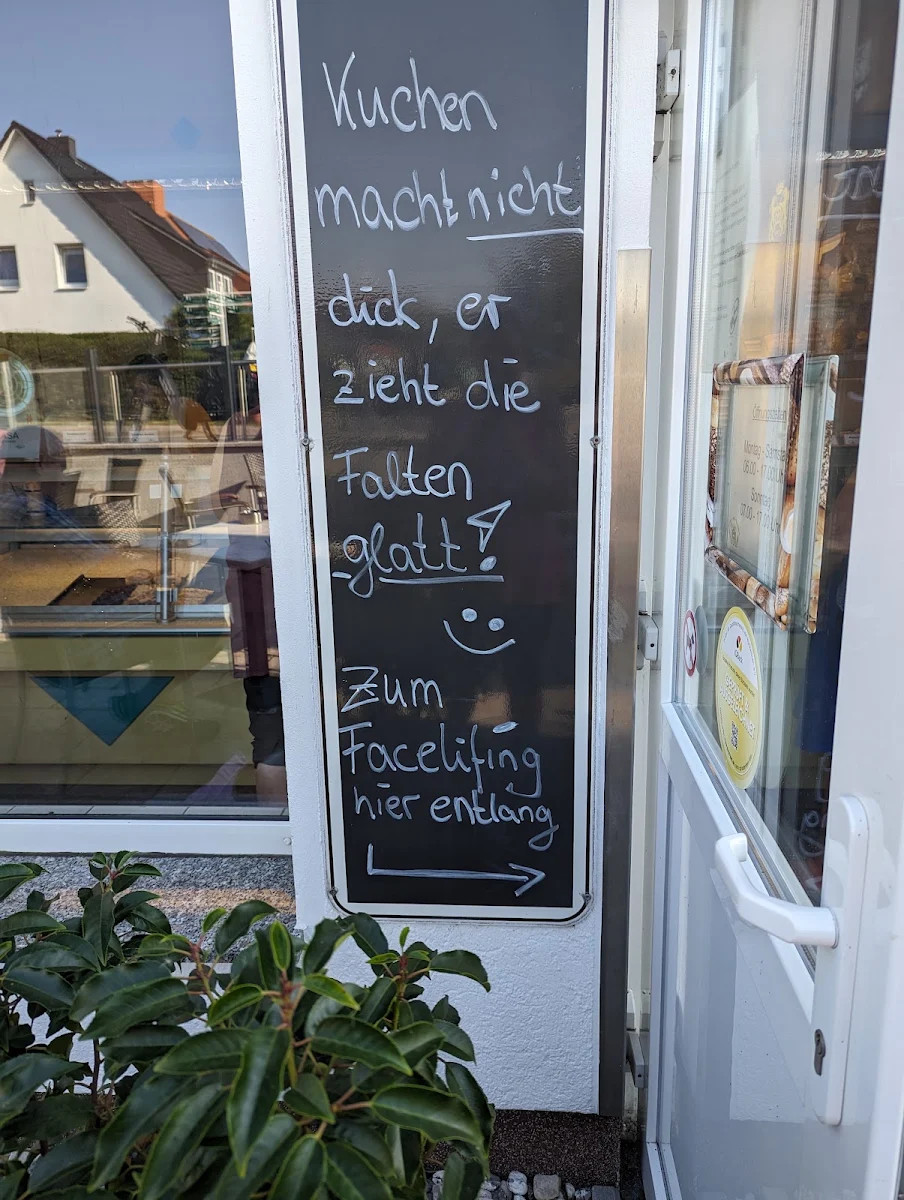 Kuchen
macht nicht
dick, er
zieht die
Falten
glatt!
Zum
Facelifing
hier entlang
Öffnungszeiten
Montag - Samstag
06.00 - 17.00 Uhr
Sonntag
07.00 - 17.00 Uhr